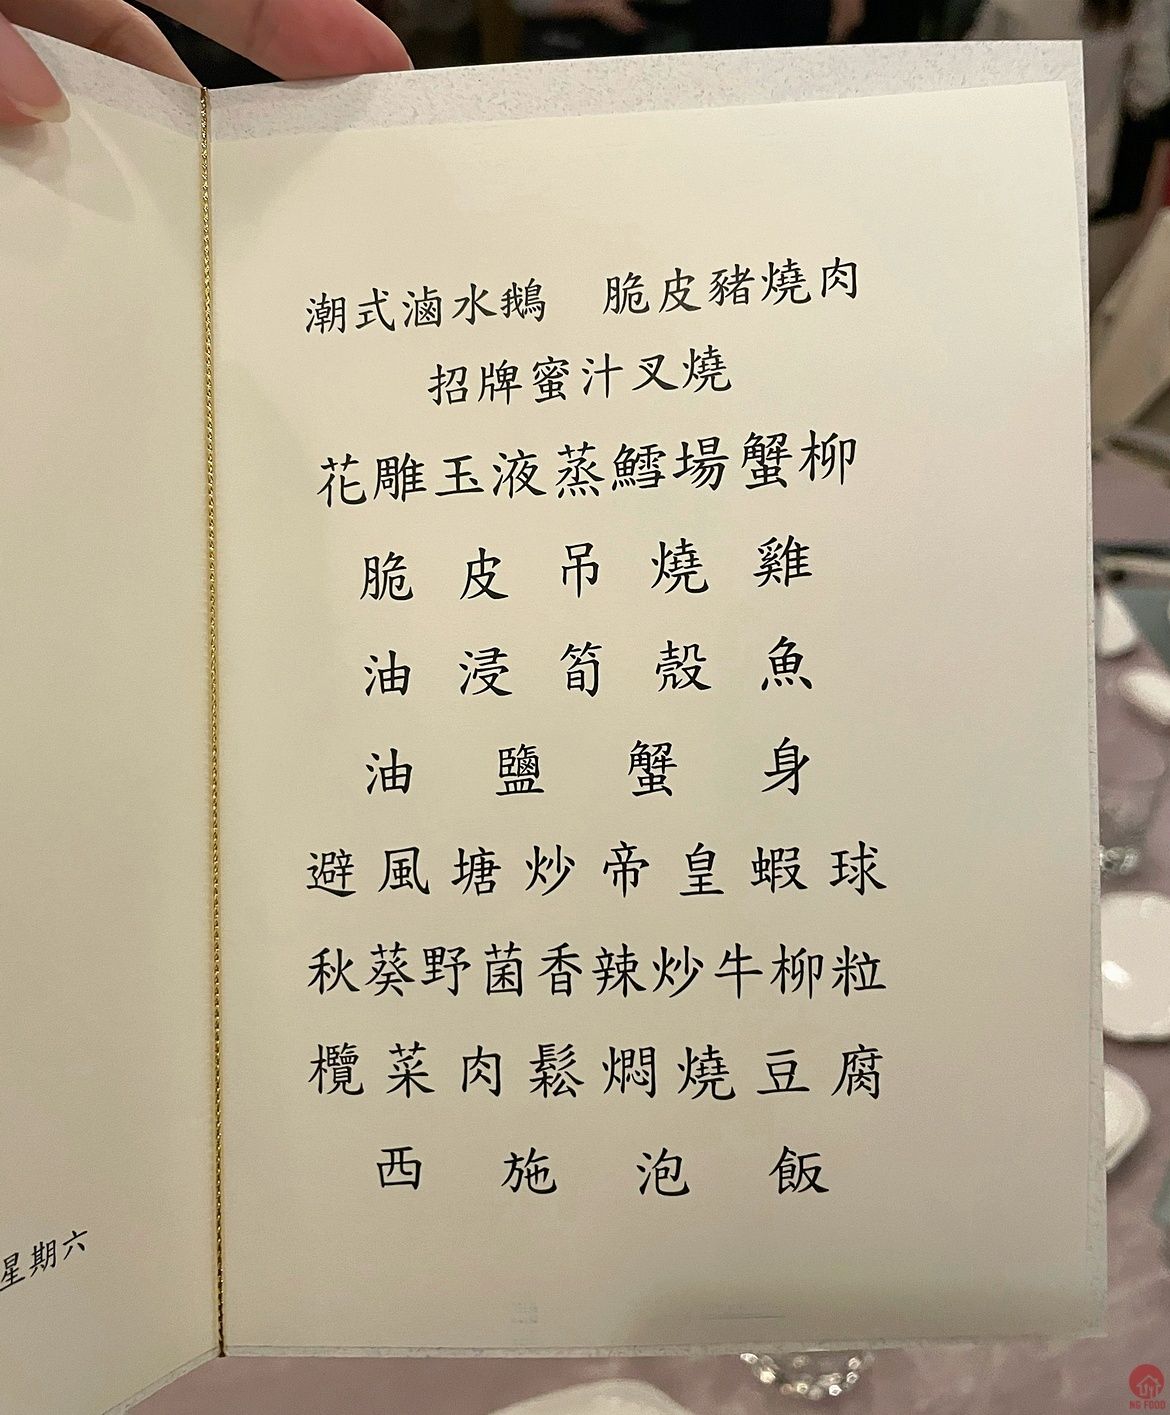 潮式滷水鵝　脆皮豬燒肉
招牌蜜汁叉燒
花雕玉液蒸鱈場蟹柳
脆皮吊燒雞
油浸筍殼魚
油鹽蟹身
避風塘炒帝皇蝦球
秋葵野菌香辣炒牛柳粒
欖菜肉鬆燜燒豆腐
西施泡飯
星期六
NG FOOD